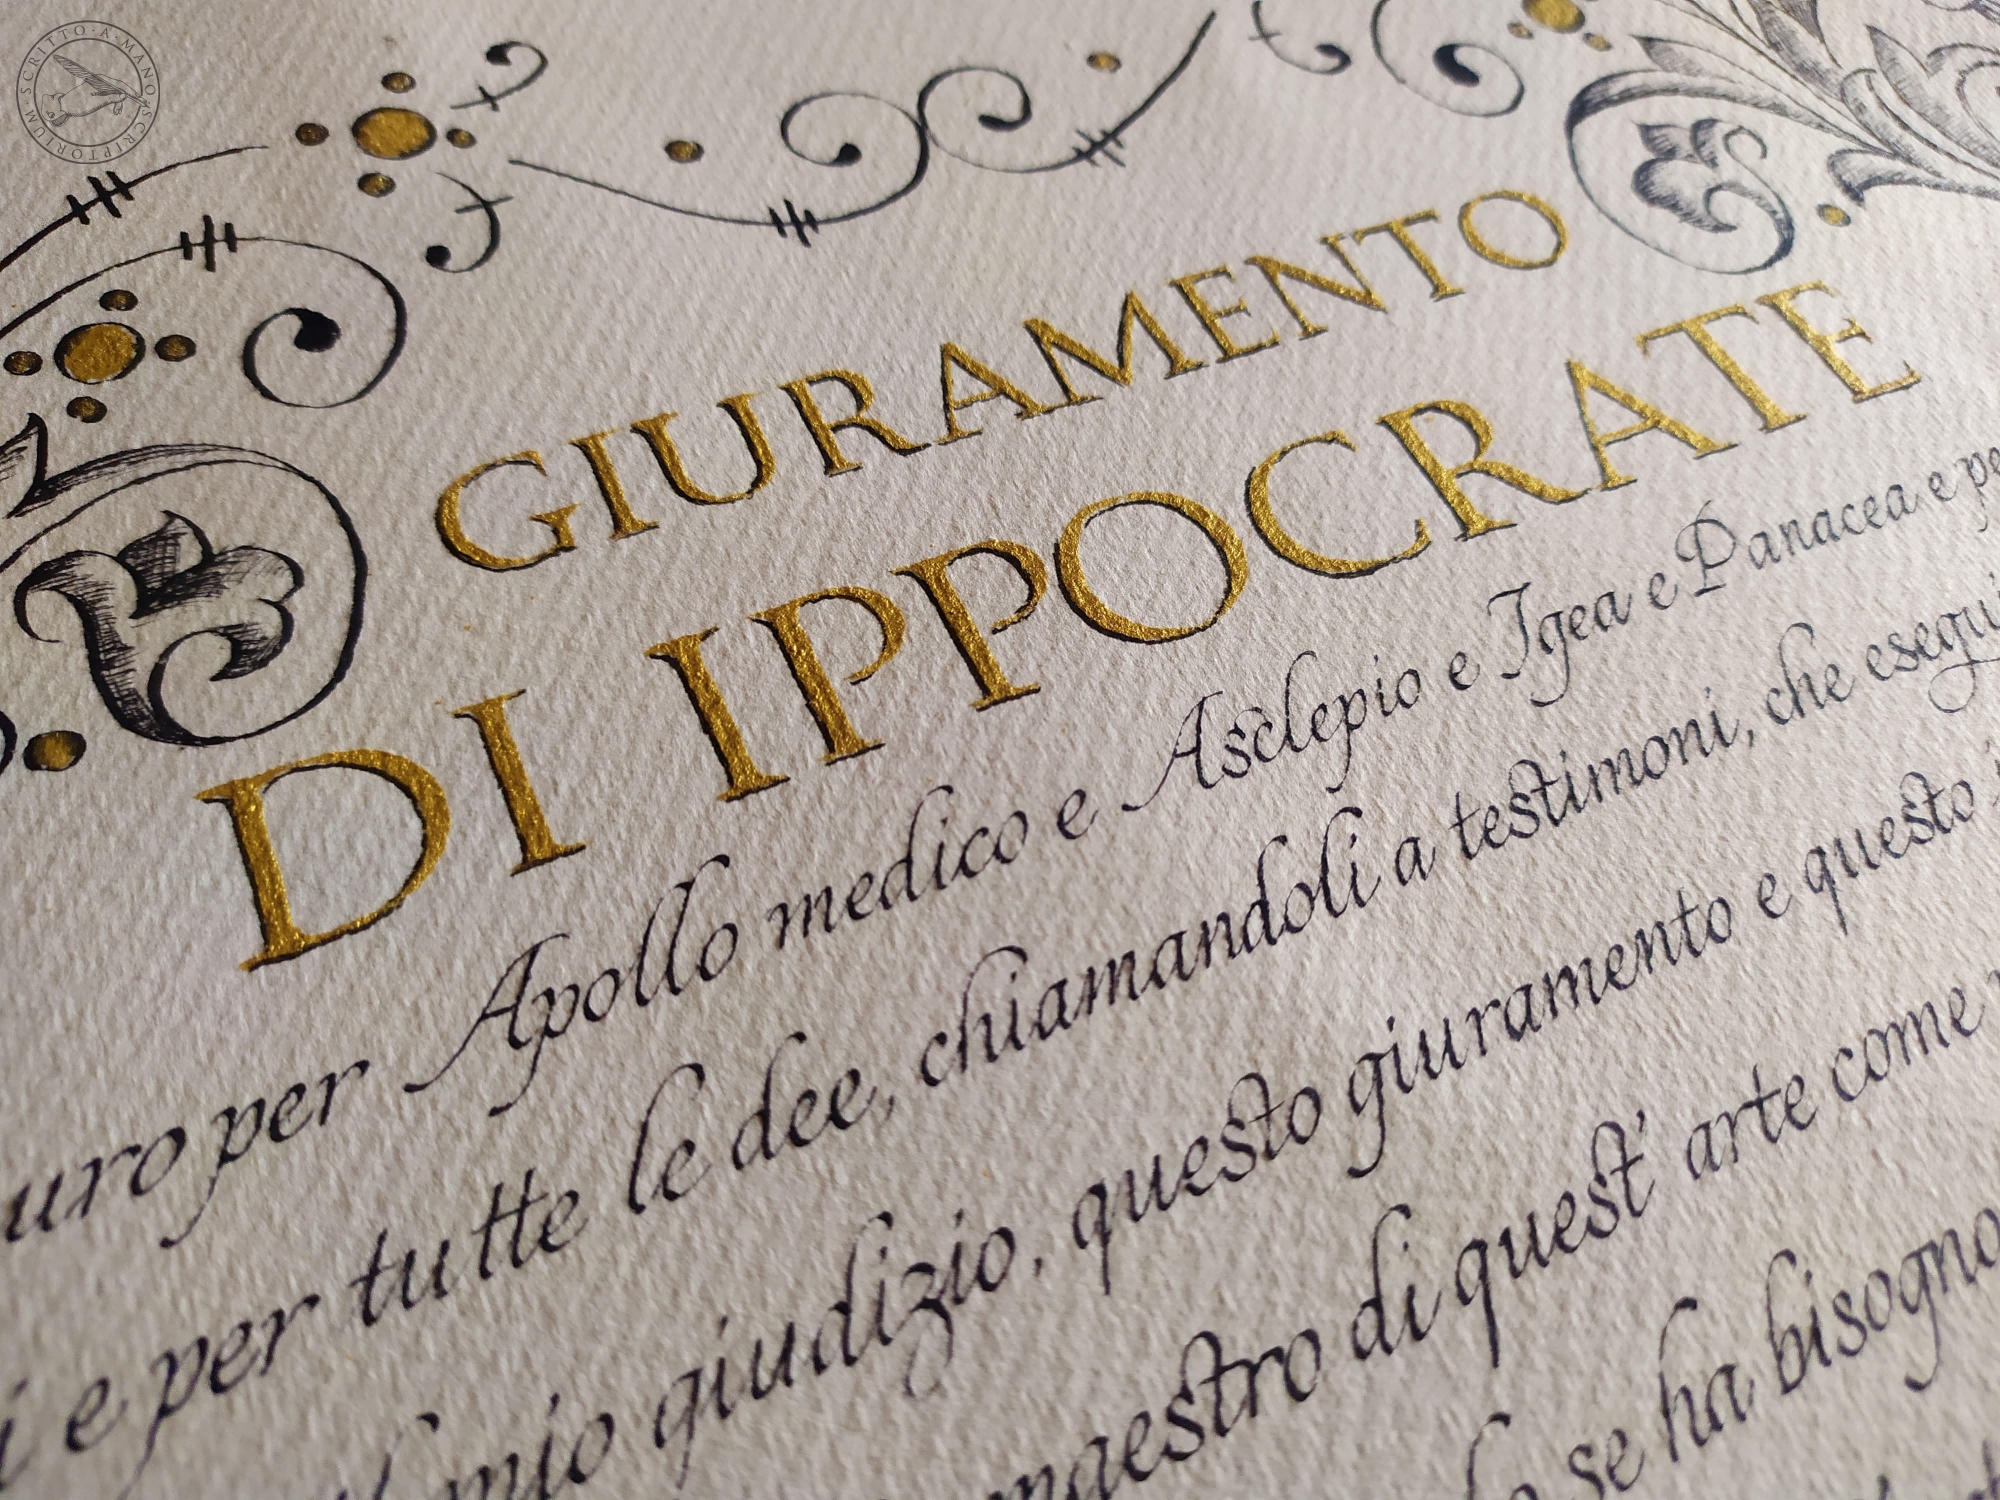 SCRITTO·A·MANO·SCRIPTORIUM·
GIURAMENTO
DI IPPOCRATE
uro per Apollo medico e Asclepio e Igea e Panacea e pe
i e per tutte le dee, chiamandoli a testimoni, che esegui
l mio giudizio, questo giuramento e questo
maestro di quest' arte come
se ha bisogno